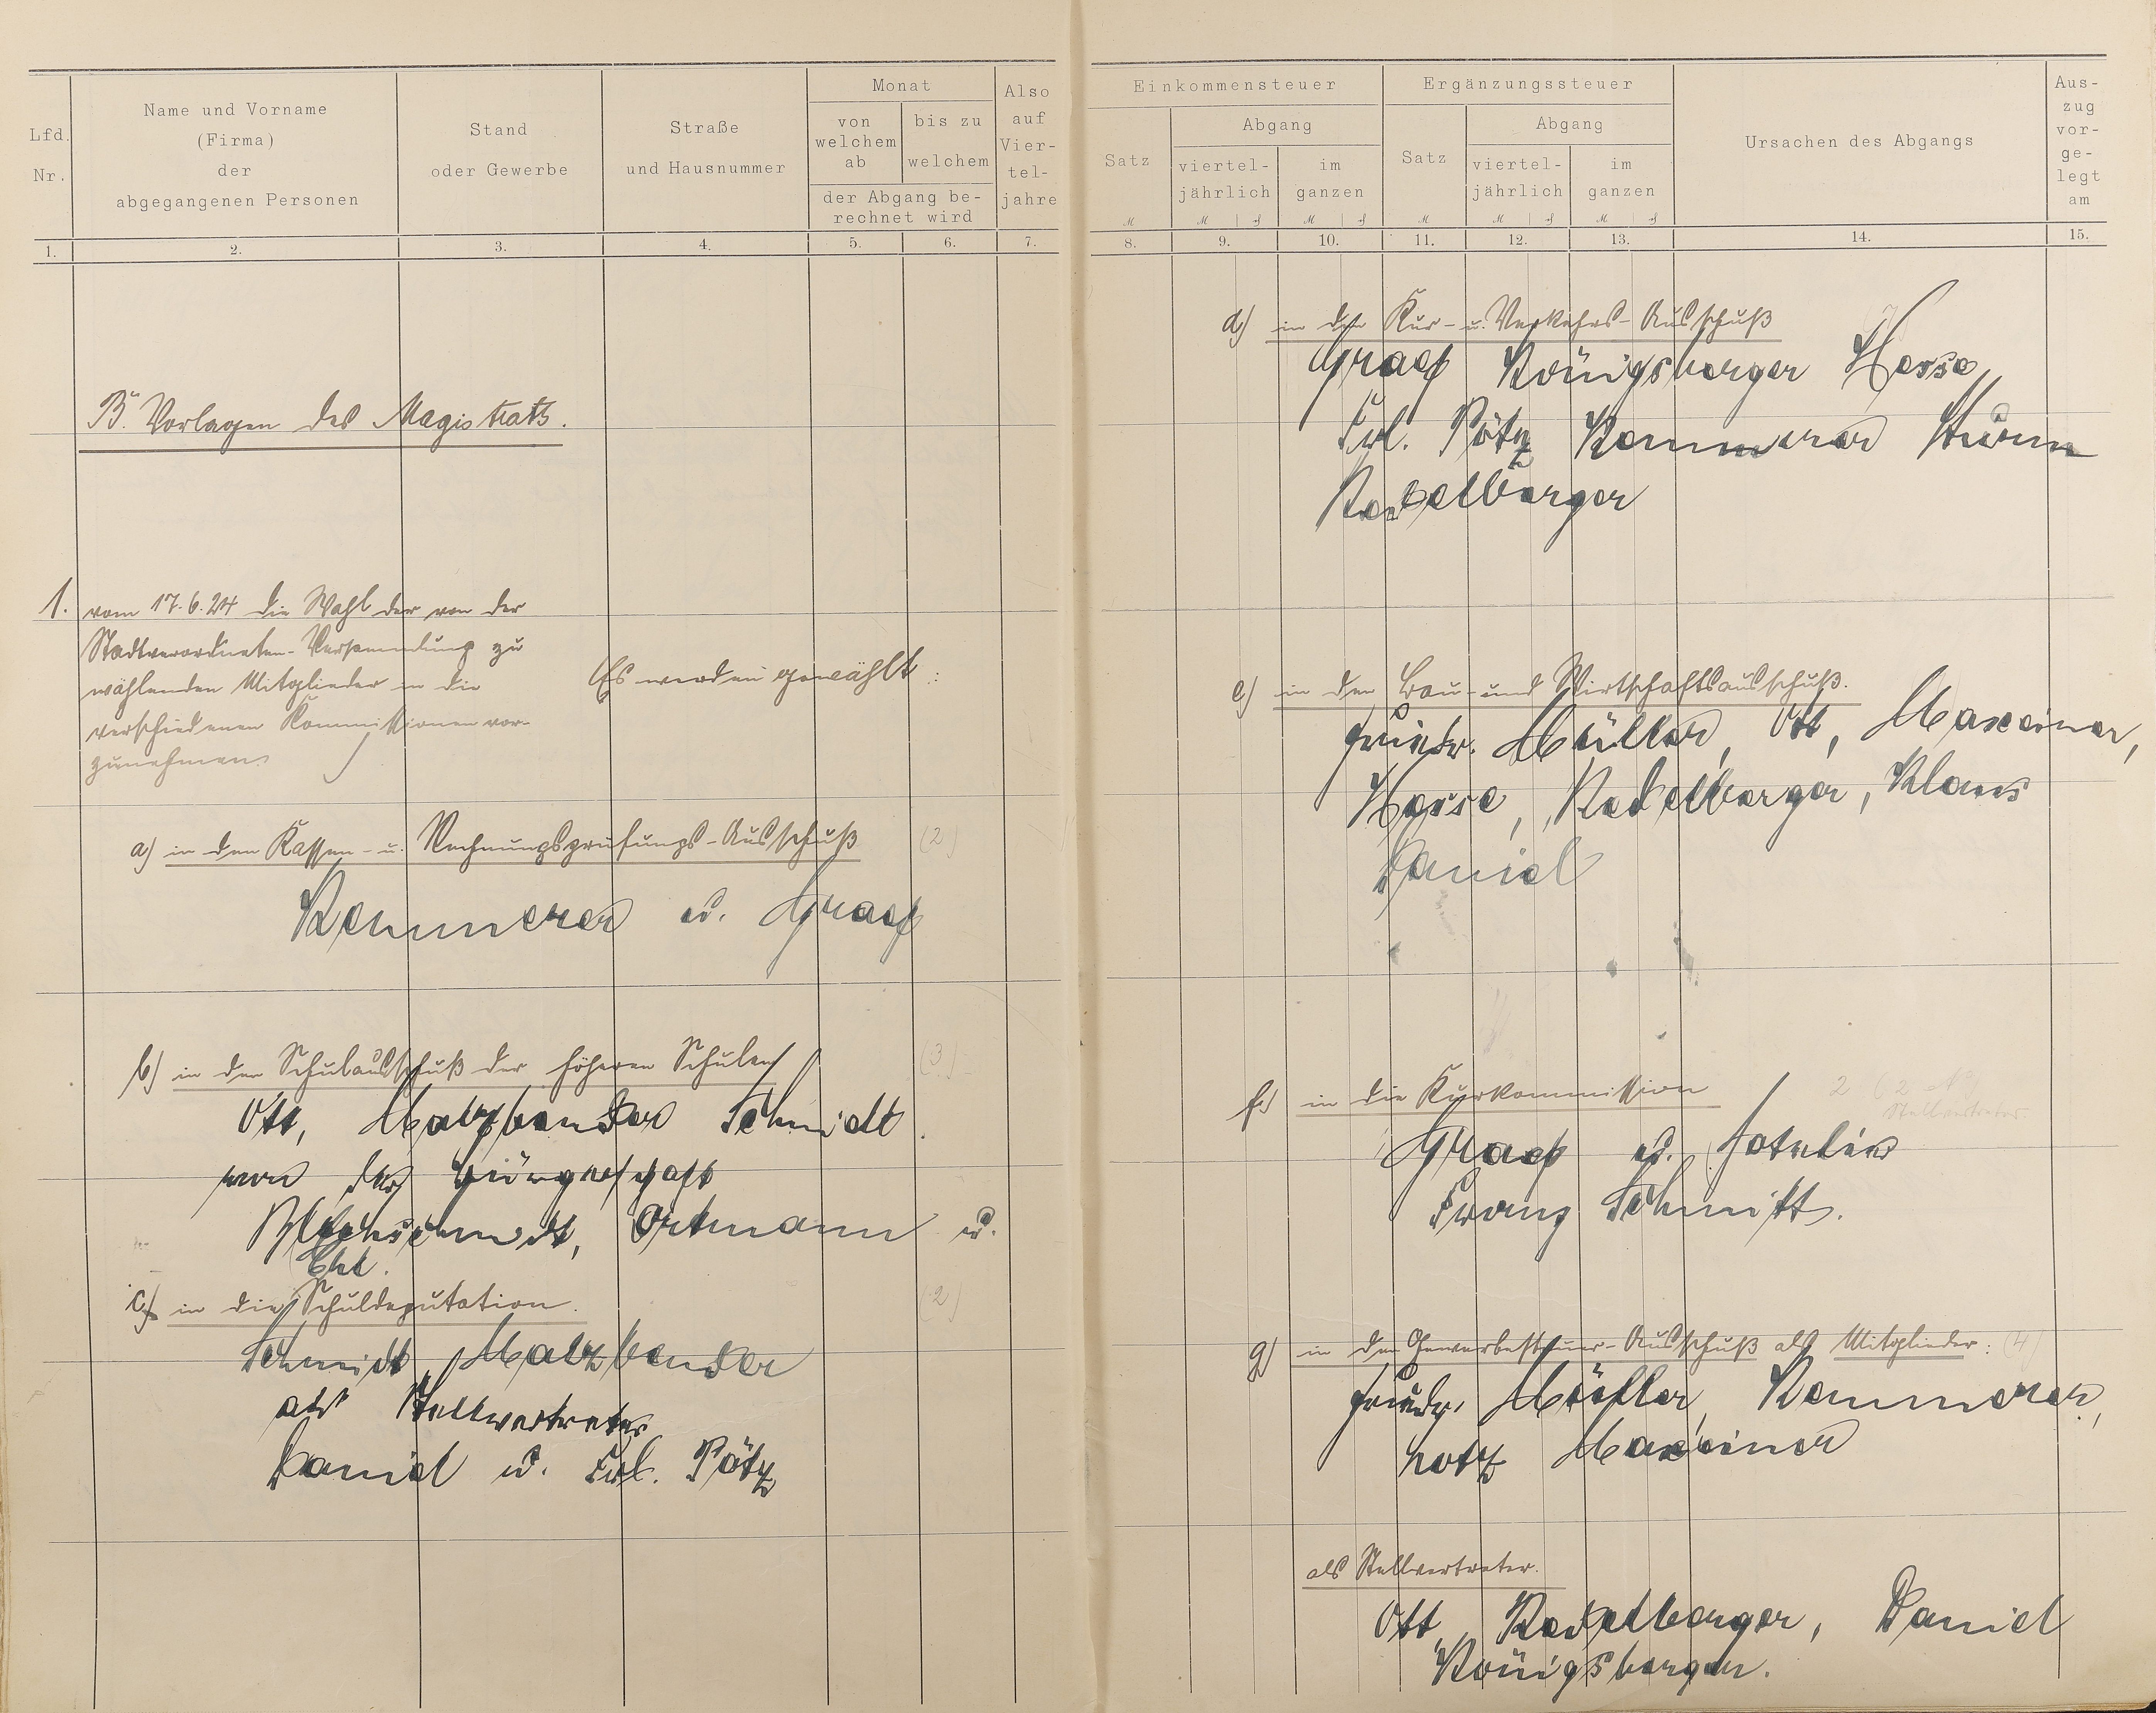 Lfd. Nr.
Name und Vorname
(Firma)
der
abgegangenen Personen
Stand
oder Gewerbe
Straße
und Hausnummer
Monat
von welchem ab
bis zu welchem
der Abgang be-
rechnet wird
Also auf Vier-tel-jahre
1. 2. 3. 4. 5. 6. 7.
B. Vorlagen des Magistrats.
1. vom 17.6.24 die Wahl der von der
Stadtverordneten-Versammlung zu
wählenden Mitglieder in die
verschiedenen Kommissionen vor-
zunehmen.
Es werden gewählt:
a) in den Kassen- u. Rechnungsprüfungs-Ausschuß (2)
Kemmerer u. Graef
b) in den Schulausschuß der höheren Schulen (3)
Ott, Malzbender Schmidt
von der Bürgerschaft
Blechschmidt, Ortmann u.
c) in die Schuldeputation. (2)
Schmidt, Malzbender
als Stellvertreter
Daniel u. Frl. Pötz
Einkommensteuer
Satz
Abgang
viertel-
jährlich
im
ganzen
Ergänzungssteuer
Satz
Abgang
viertel-
jährlich
im
ganzen
Ursachen des Abgangs
Aus-
zug
vor-
ge-
legt
am
8. 9. 10. 11. 12. 13. 14. 15.
d) in den Kur- u. Verkehrs-Ausschuß
Graef Königsberger Hesse
Frl. Pötz Kemmerer Sturm
Kadelberger
e) in den Bau- und Wirtschaftsausschuß.
Friedr. Müller, Ott, Maxeiner,
Hesse, Kadelberger, Klaus
Daniel
f.) in die Kurkommission
Graef u. Hotelier
Franz Schmitt.
g) in den Gewerbesteuer-Ausschuß als Mitglieder: (4)
Friedr. Müller, Kemmerer,
Notz Maxeiner
als Stellvertreter.
Ott, Kadelberger, Daniel
Königsberger.